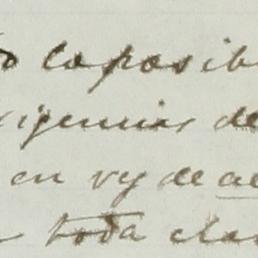 o laposib
xigencias de
en vy de ac
toda clas